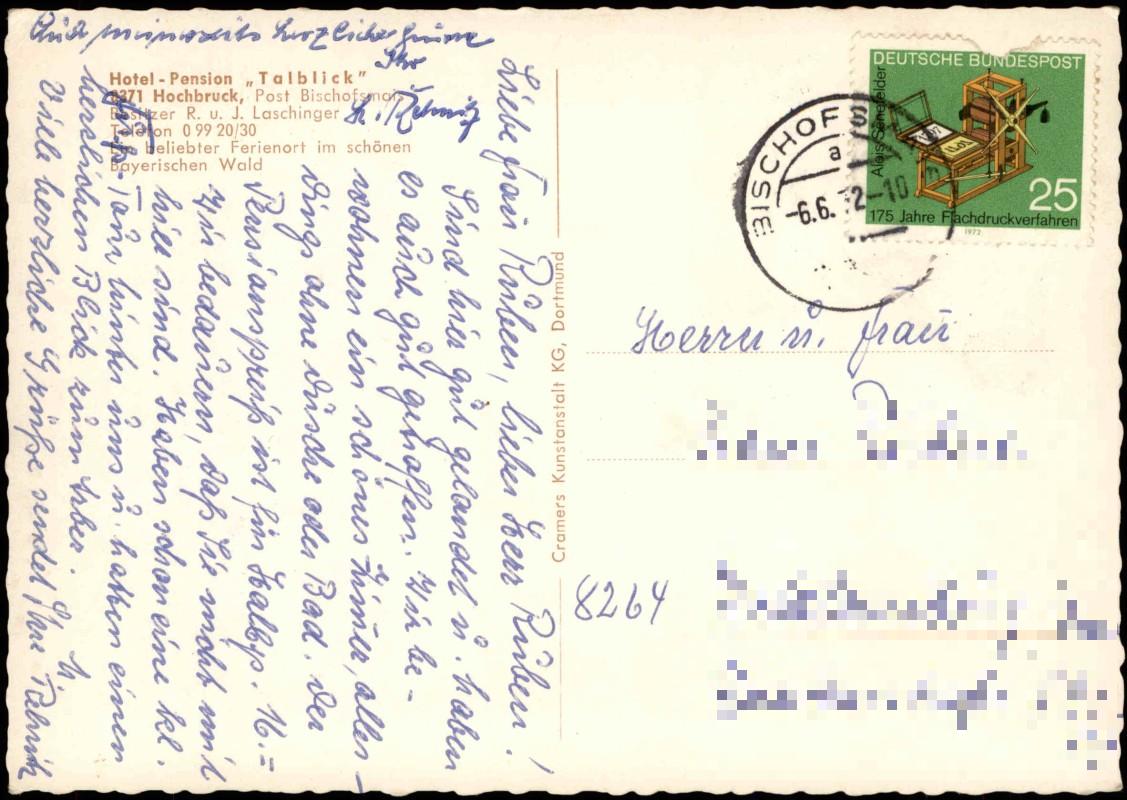 Auch meinerseits herzliche Grüsse
Ihr
Hotel-Pension „Talblick"
8371 Hochbruck, Post Bischofsmais
Besitzer R. u. J. Laschinger
Telefon 0 99 20/30
Ein beliebter Ferienort im schönen
Bayerischen Wald
Liebe Frau Ruben, lieber Herr Ruben!
Sind hier gut gelandet u. haben
es auch gut getroffen. Wir be-
wohnen ein schönes Zimmer, aller-
dings ohne Dusche oder Bad. Der
Pensionspreis ist für Halbp. 16.=
Wir bedauern, daß Sie nicht mit
hier sind. Haben schon eine kl.
Tour hinter uns u. hatten einen
herrlichen Blick zum Arber.
Viele herzliche Grüße sendet Ihre
Cramers Kunstanstalt KG, Dortmund
DEUTSCHE BUNDESPOST
Alois Senefelder
25
175 Jahre Flachdruckverfahren
1972
BISCHOFS
a
-6.6.72-10
Herrn u. Frau
8264